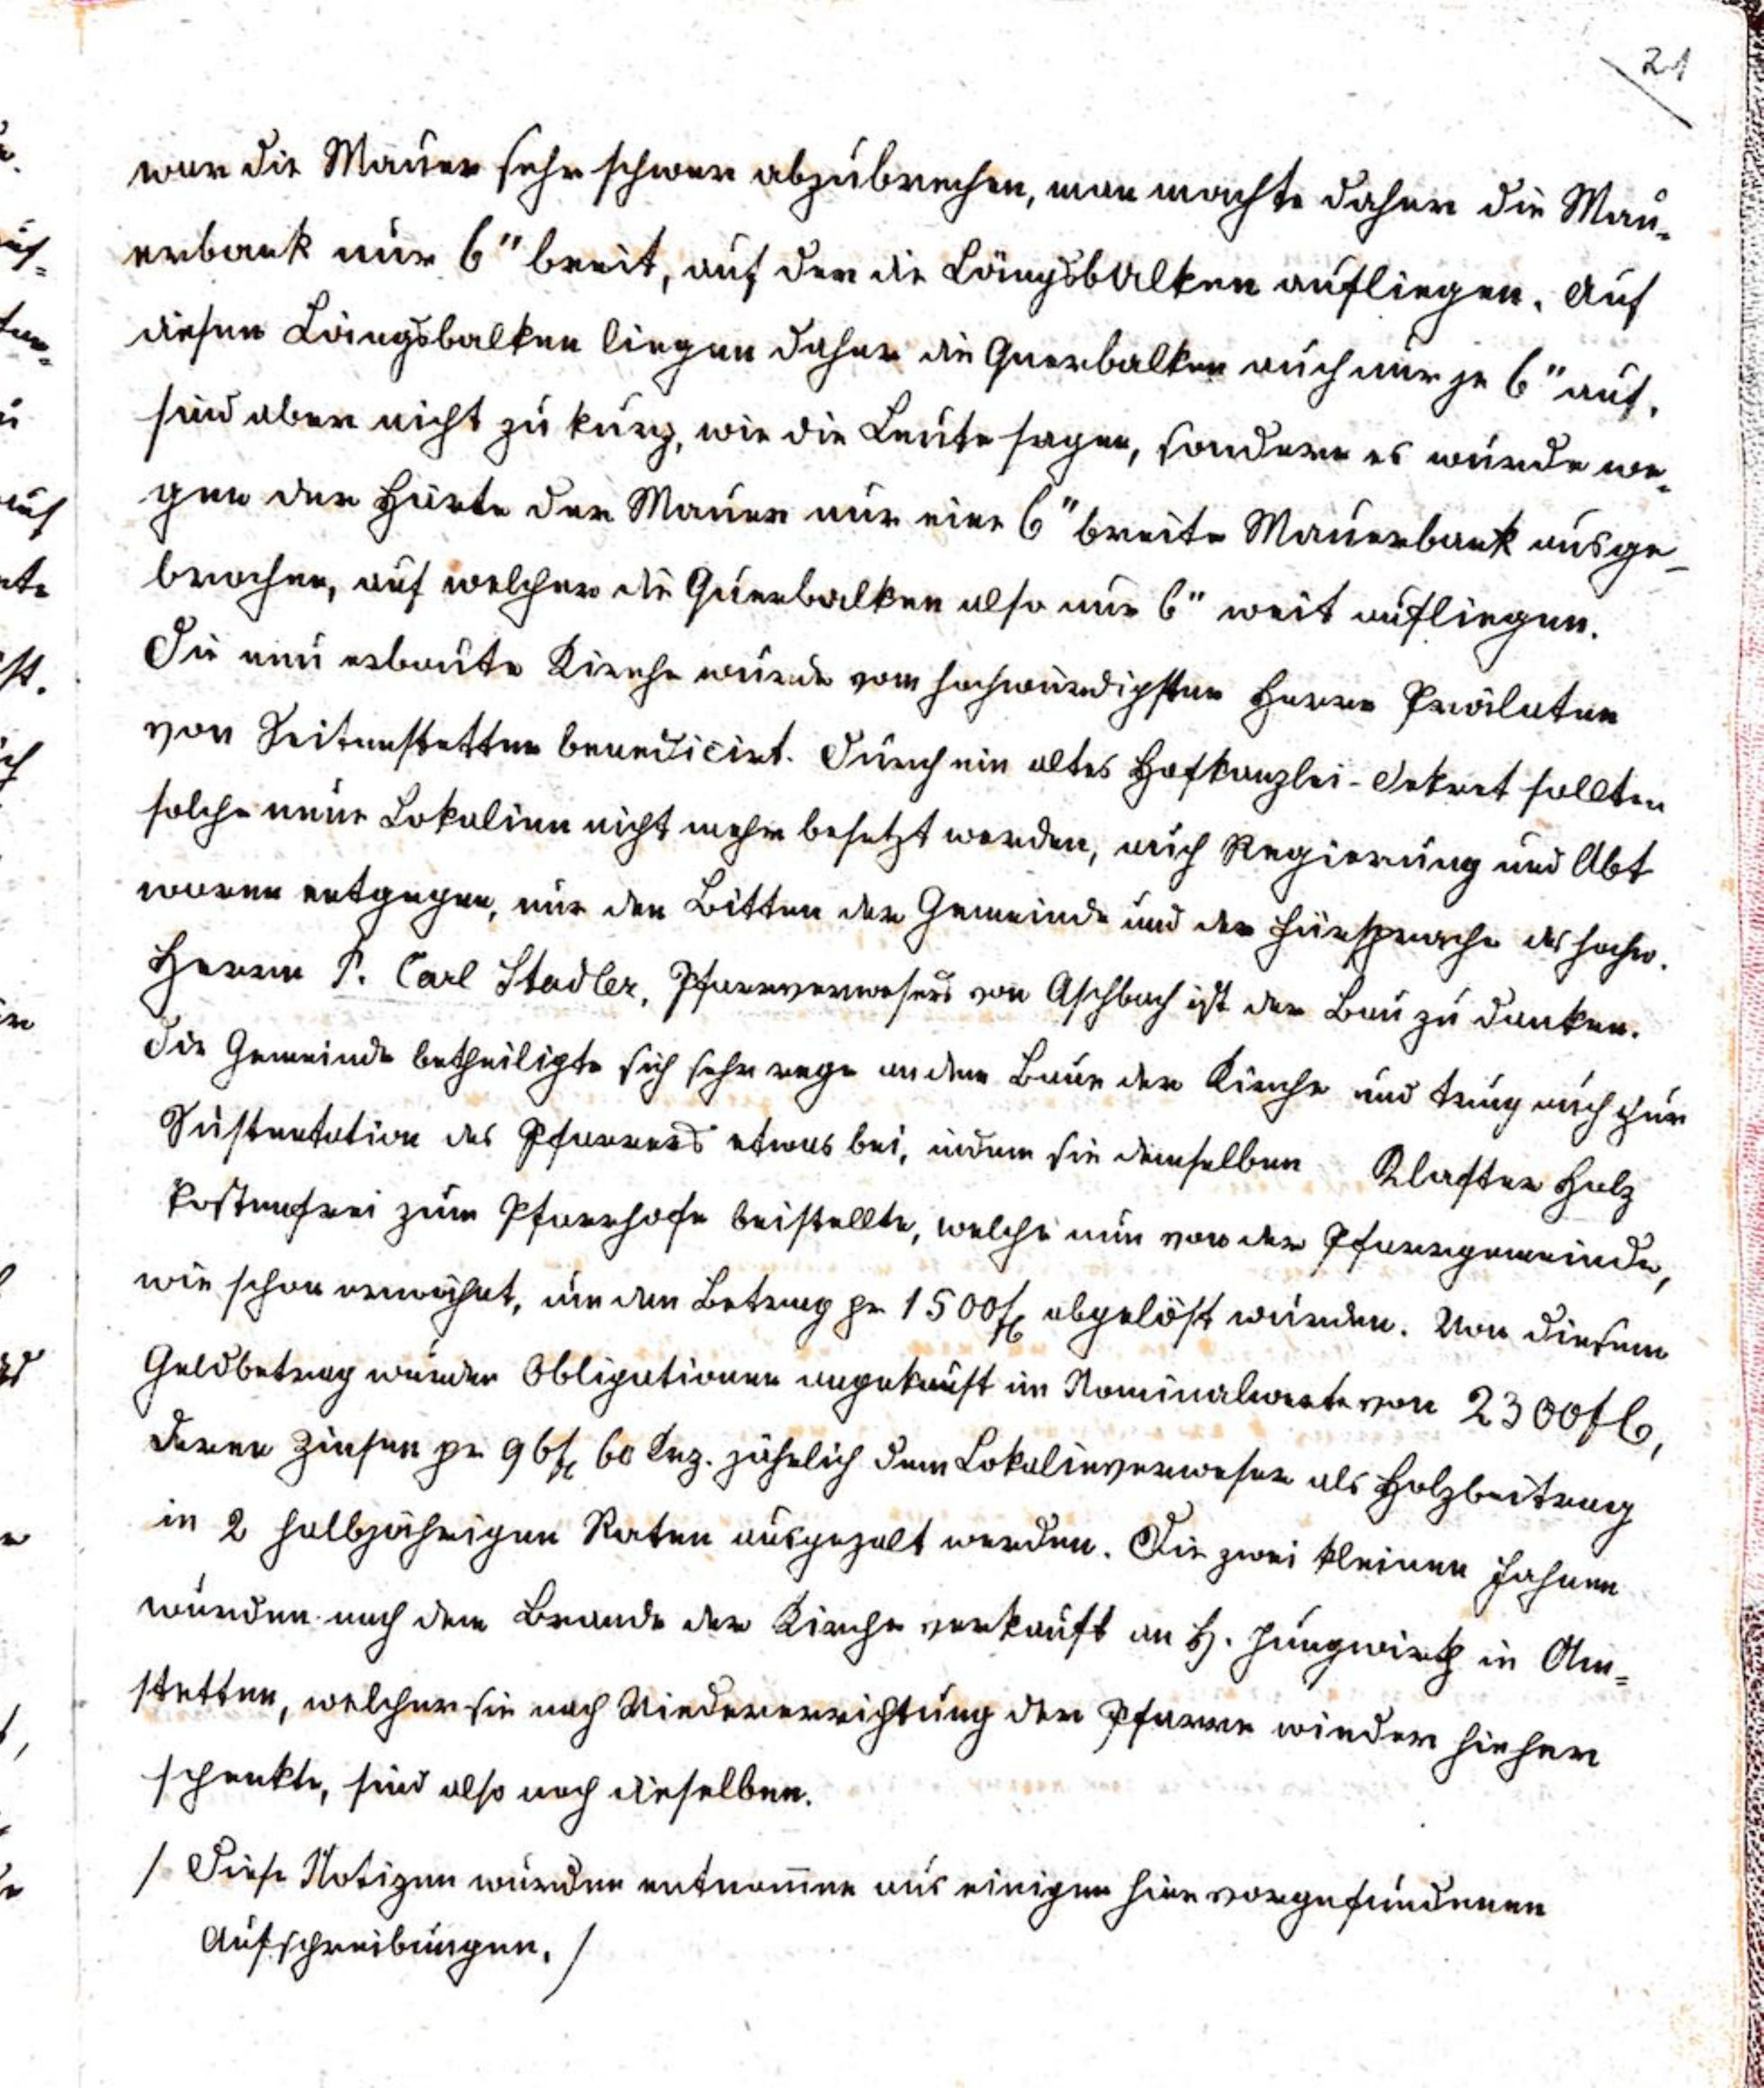 21
war die Mauer sehr schwer abzubrechen, man machte daher die Mau-
erbank nur 6" breit, auf der die Längsbalken aufliegen. Auf
diesen Längsbalken liegen daher die Querbalken auch nur je 6" auf,
sind aber nicht zu kurz, wie die Leute sagen, sondern es wurde we-
gen der Härte der Mauer nur eine 6" breite Mauerbank ausge-
brochen, auf welcher die Querbalken also nur 6" weit aufliegen.
Die neu erbaute Kirche wurde vom hochwürdigsten Herrn Prälaten
von Seitenstetten benedicirt. Durch ein altes Hofkanzlei-Dekret sollten
solche neue Lokalien nicht mehr besetzt werden, auch Regierung und Abt
waren entgegen, nur den Bitten der Gemeinde und der Fürsprache des hochw.
Herrn P. Carl Stadler, Pfarrverwesers von Aschbach ist der Bau zu danken.
Die Gemeinde betheiligte sich sehr rege an dem Baue der Kirche und trug auch zur
Sustentation des Pfarrers etwas bei, indem sie demselben Klafter Holz
kostenfrei zum Pfarrhofe beistellte, welche nun von der Pfarrgemeinde,
wie schon erwähnt, um den Betrag pr 1500 fl abgelöst wurden. Von diesem
Geldbetrag wurden Obligationen angekauft im Nominalwerte von 2300 fl,
deren Zinsen pr 96 fl 60 Krz. jährlich dem Lokalieverweser als Holzbeitrag
in 2 halbjährigen Raten ausgezalt werden. Die zwei kleinen Fahnen
wurden nach dem Brande der Kirche verkauft an H. Jungwirth in Am-
stetten, welcher sie nach Wiedererrichtung der Pfarre wieder hieher
schenkte, sind also noch dieselben.
/ Diese Notizen wurden entnommen aus einigen hier vorgefundenen
Aufschreibungen. /